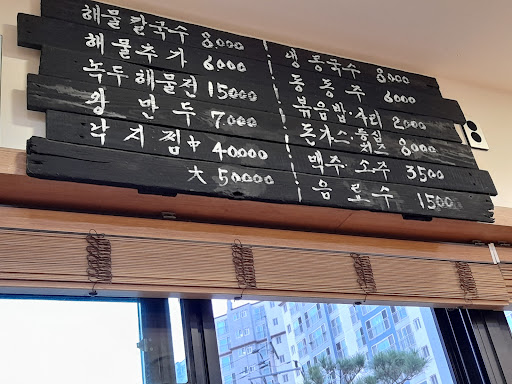 해물칼국수 8000
해물추가 6000
녹두해물전 15000
왕만두 7000
낙지찜 中 40000
大 50000
냉콩국수 8000
동동주 6000
볶음밥·사리 2000
돈가스·등심 치즈 8000
맥주 소주 3500
음료수 1500